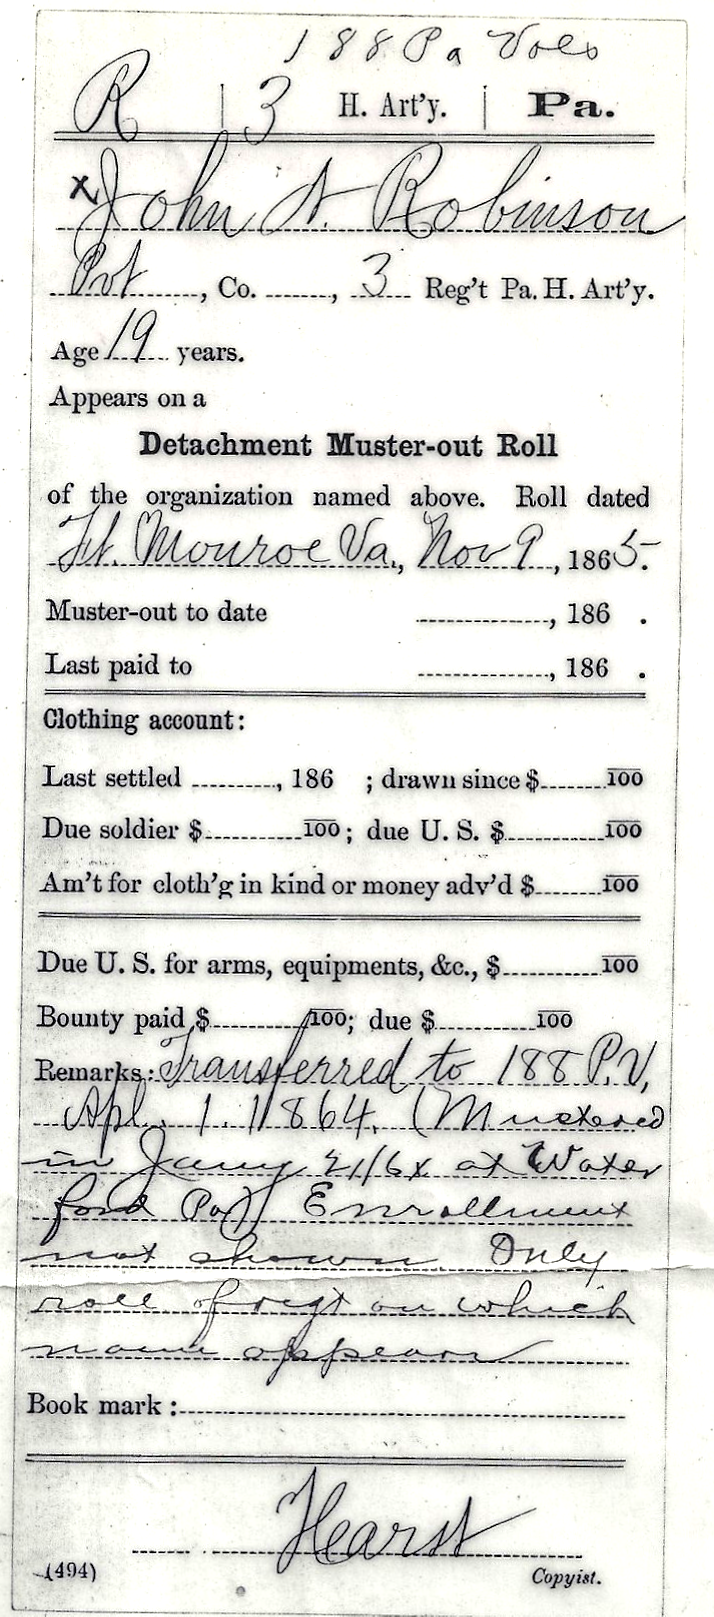 188 Pa Vols
R | 3 H. Art'y. | Pa.
x John A. Robinson
Pvt, Co. , 3 Reg't Pa. H. Art'y.
Age 19 years.
Appears on a
Detachment Muster-out Roll
of the organization named above. Roll dated
Ft. Monroe Va., Nov 9, 1865.
Muster-out to date , 186 .
Last paid to , 186 .
Clothing account:
Last settled , 186 ; drawn since $ 100
Due soldier $ 100; due U. S. $ 100
Am't for cloth'g in kind or money adv'd $ 100
Due U. S. for arms, equipments, &c., $ 100
Bounty paid $ 100; due $ 100
Remarks: Transferred to 188 P.V,
Apl. 1. 1864. (Mustered
in Jany 21/64 at Water
ford Pa) Enrollment
not shown. Only
roll of regt on which
name appears
Book mark:
Hearst
(494) Copyist.